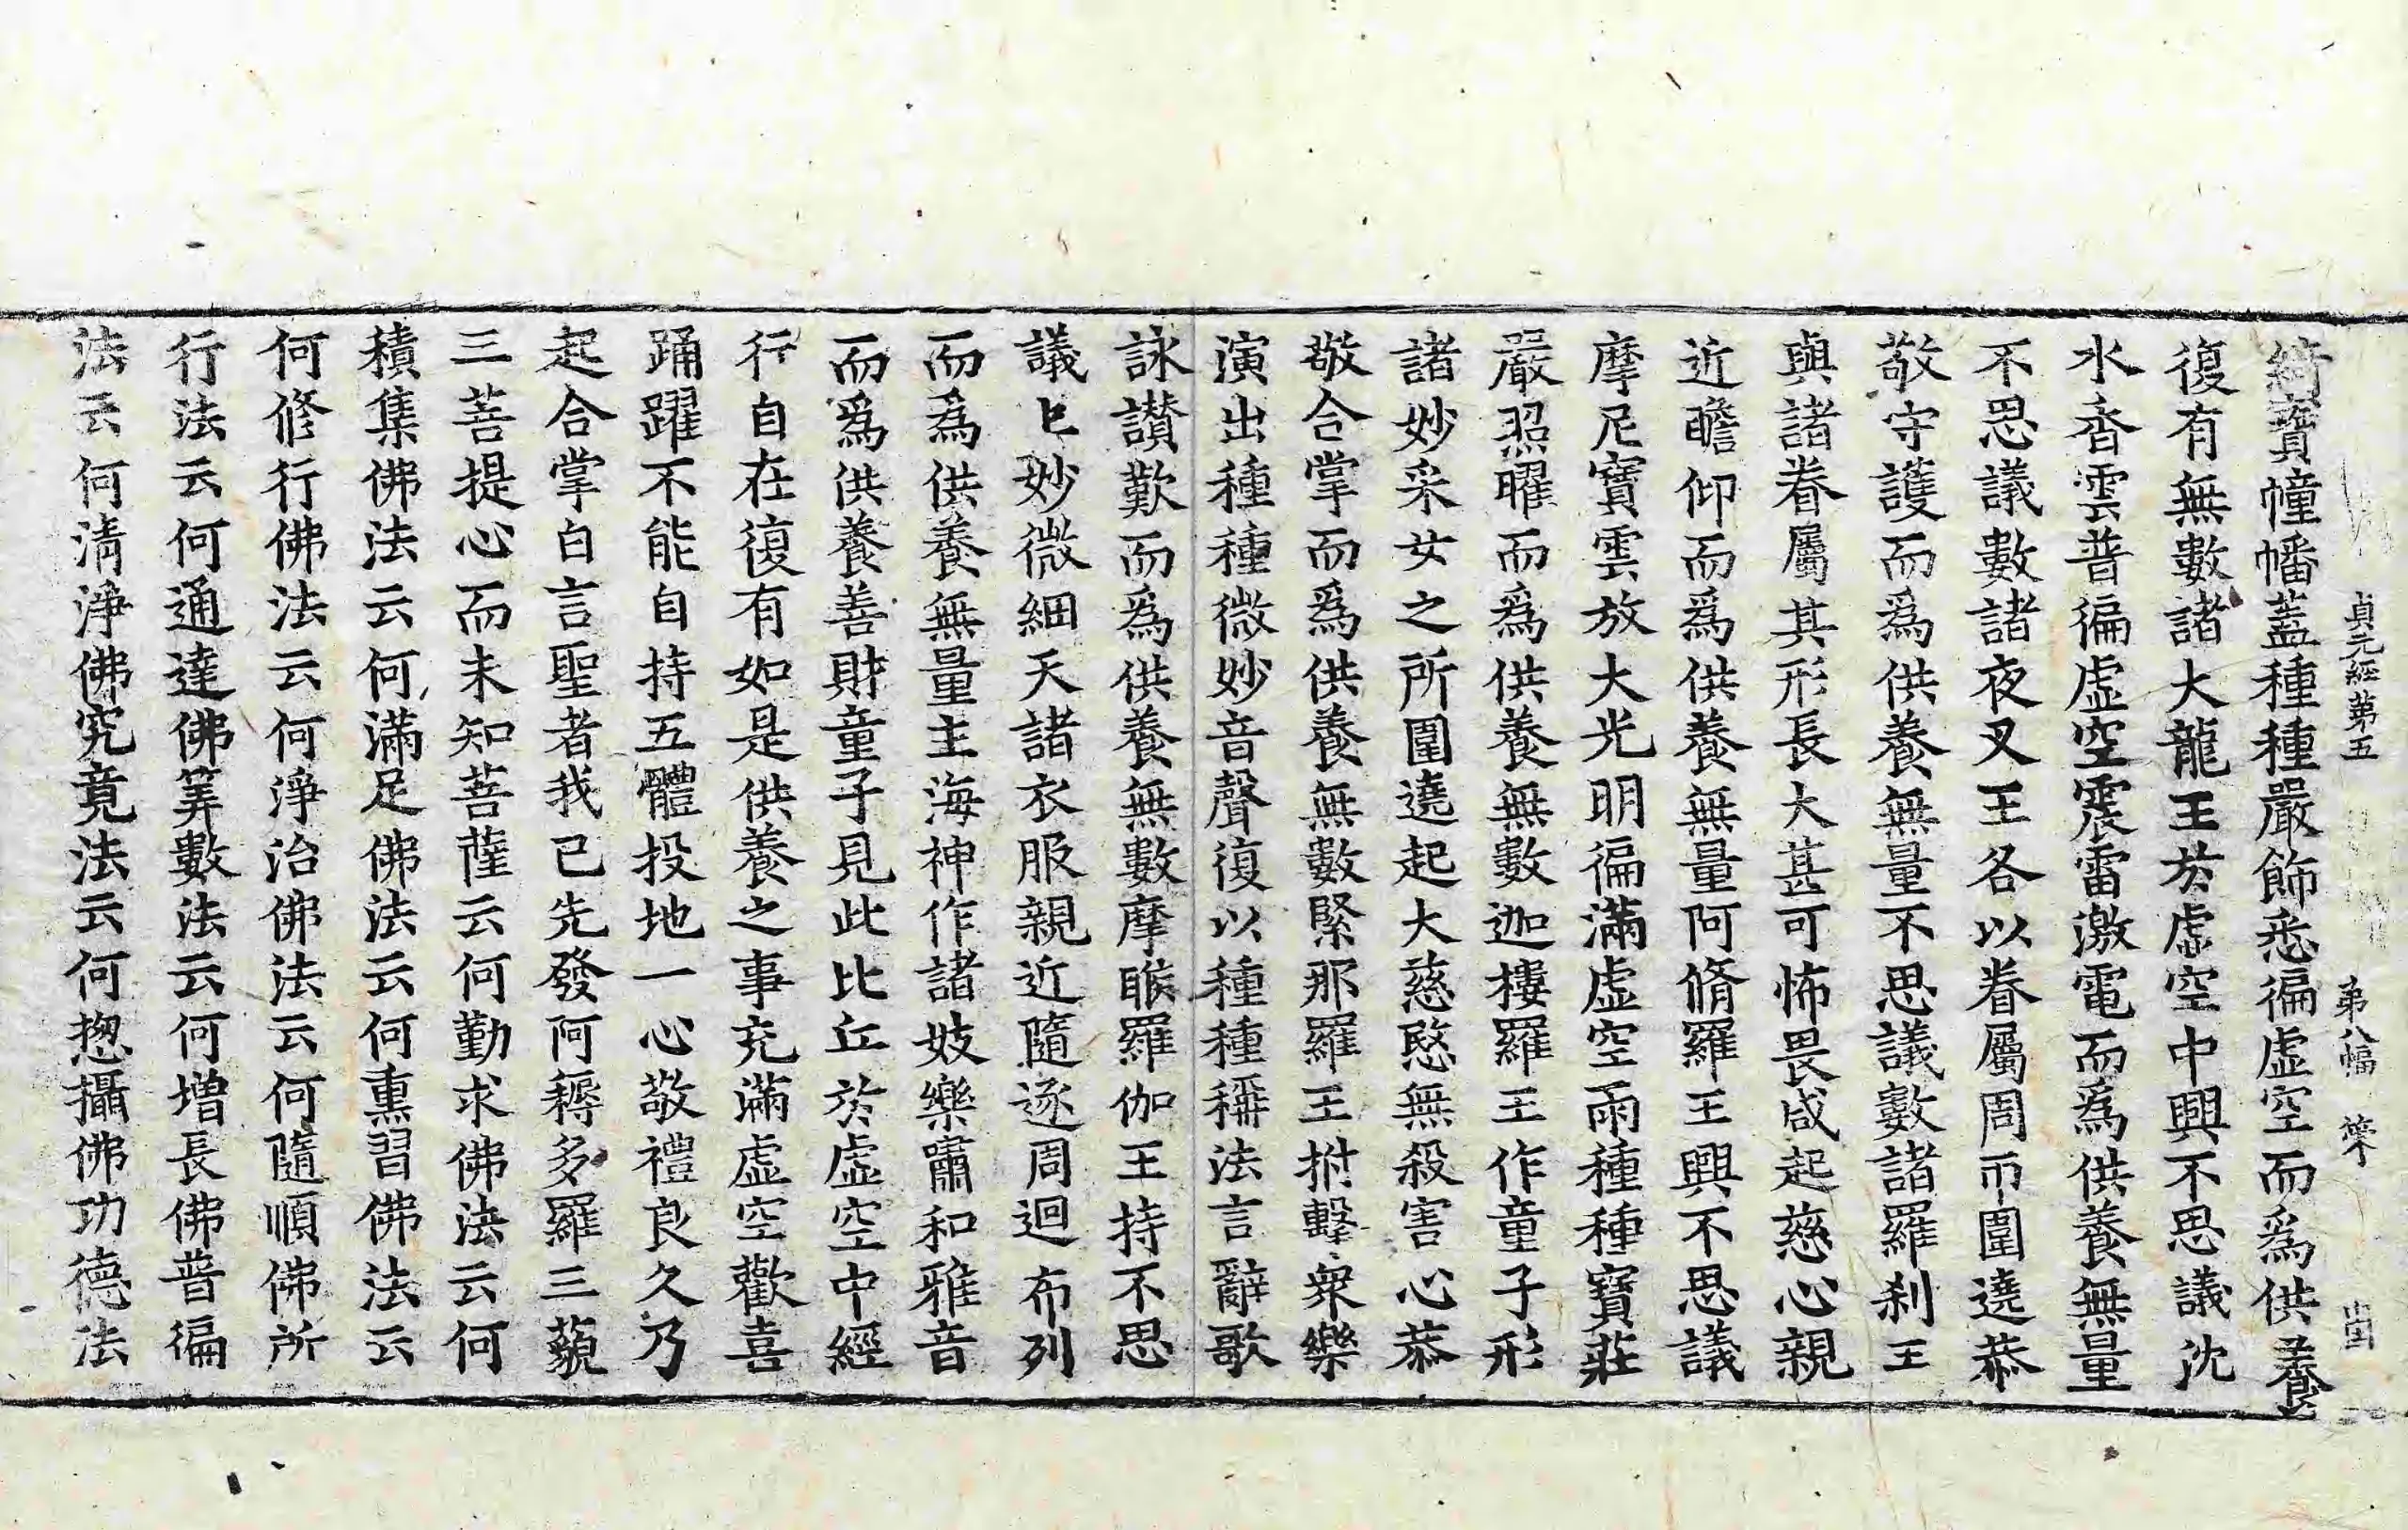 貞元經第五 第八幅
綺寶幢幡蓋種種嚴飾悉徧虛空而爲供養
復有無數諸大龍王於虛空中興不思議沈
水香雲普徧虛空震雷激電而爲供養無量
不思議數諸夜叉王各以眷屬周帀圍遶恭
敬守護而爲供養無量不思議數諸羅刹王
與諸眷屬其形長大甚可怖畏咸起慈心親
近瞻仰而爲供養無量阿脩羅王興不思議
摩尼寶雲放大光明徧滿虛空雨種種寶莊
嚴照曜而爲供養無數迦樓羅王作童子形
諸妙采女之所圍遶起大慈愍無殺害心恭
敬合掌而爲供養無數緊那羅王拊擊衆樂
演出種種微妙音聲復以種種稱法言辭歌
詠讃歎而爲供養無數摩睺羅伽王持不思
議上妙微細天諸衣服親近隨逐周迴布列
而爲供養無量主海神作諸妓樂嘯和雅音
而爲供養善財童子見此比丘於虛空中經
行自在復有如是供養之事充滿虛空歡喜
踊躍不能自持五體投地一心敬禮良久乃
起合掌白言聖者我已先發阿耨多羅三藐
三菩提心而未知菩薩云何勤求佛法云何
積集佛法云何滿足佛法云何熏習佛法云
何修行佛法云何淨治佛法云何隨順佛所
行法云何通達佛筭數法云何增長佛普徧
法云何淸淨佛究竟法云何揔攝佛功德法